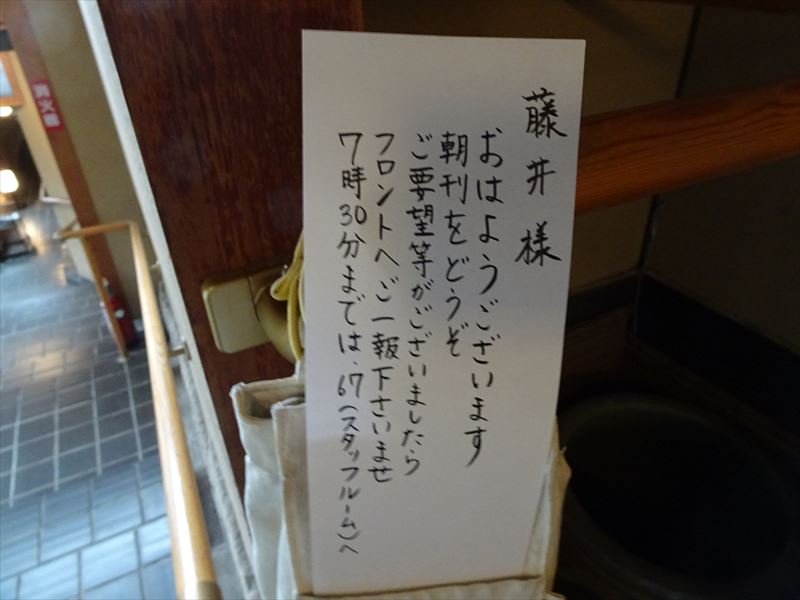 藤井様
おはようございます
朝刊をどうぞ
ご要望等がございましたら
フロントへご一報下さいませ
7時30分までは、67(スタッフルーム)へ
消火器